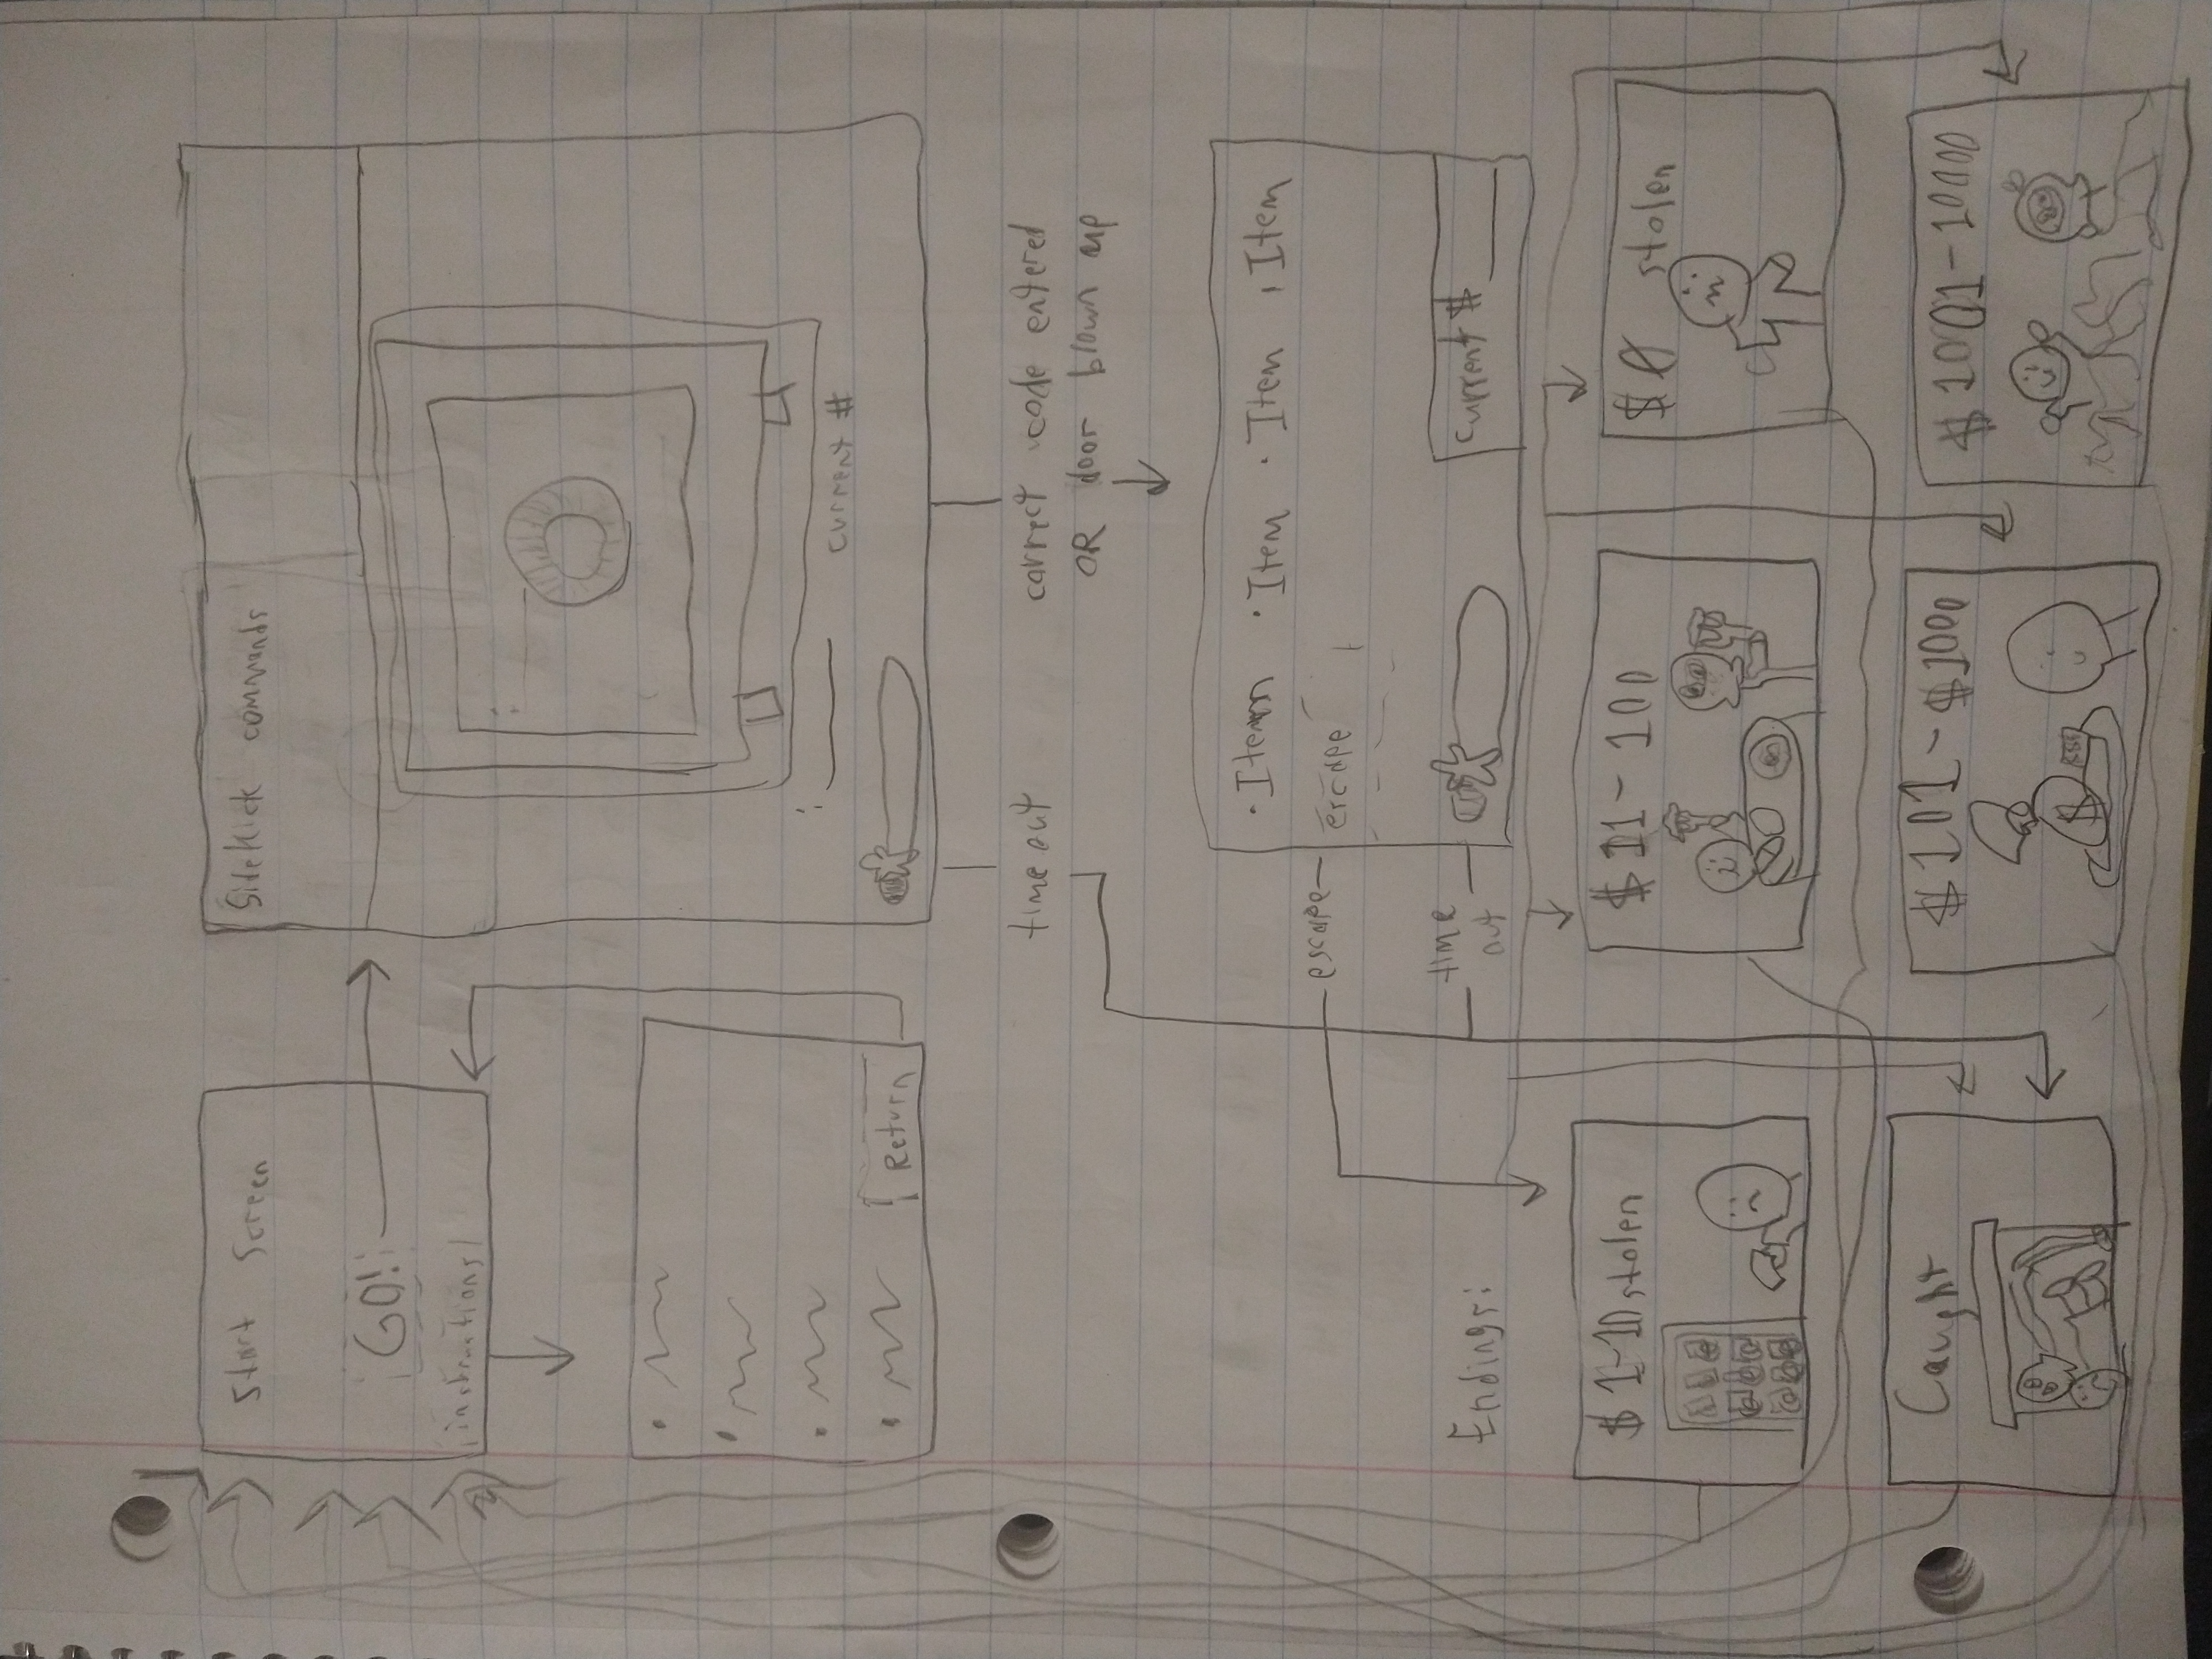 Start Screen
GO!
instructions
Return
Sidekick commands
current #
time out
correct code entered
OR door blown up
• Item • Item • Item • Item
escape
escape
time
out
current $
Endings:
$ 1-10 stolen
$ 11-100
$ 0 stolen
Caught
$101-$1000
$1001-10000
$